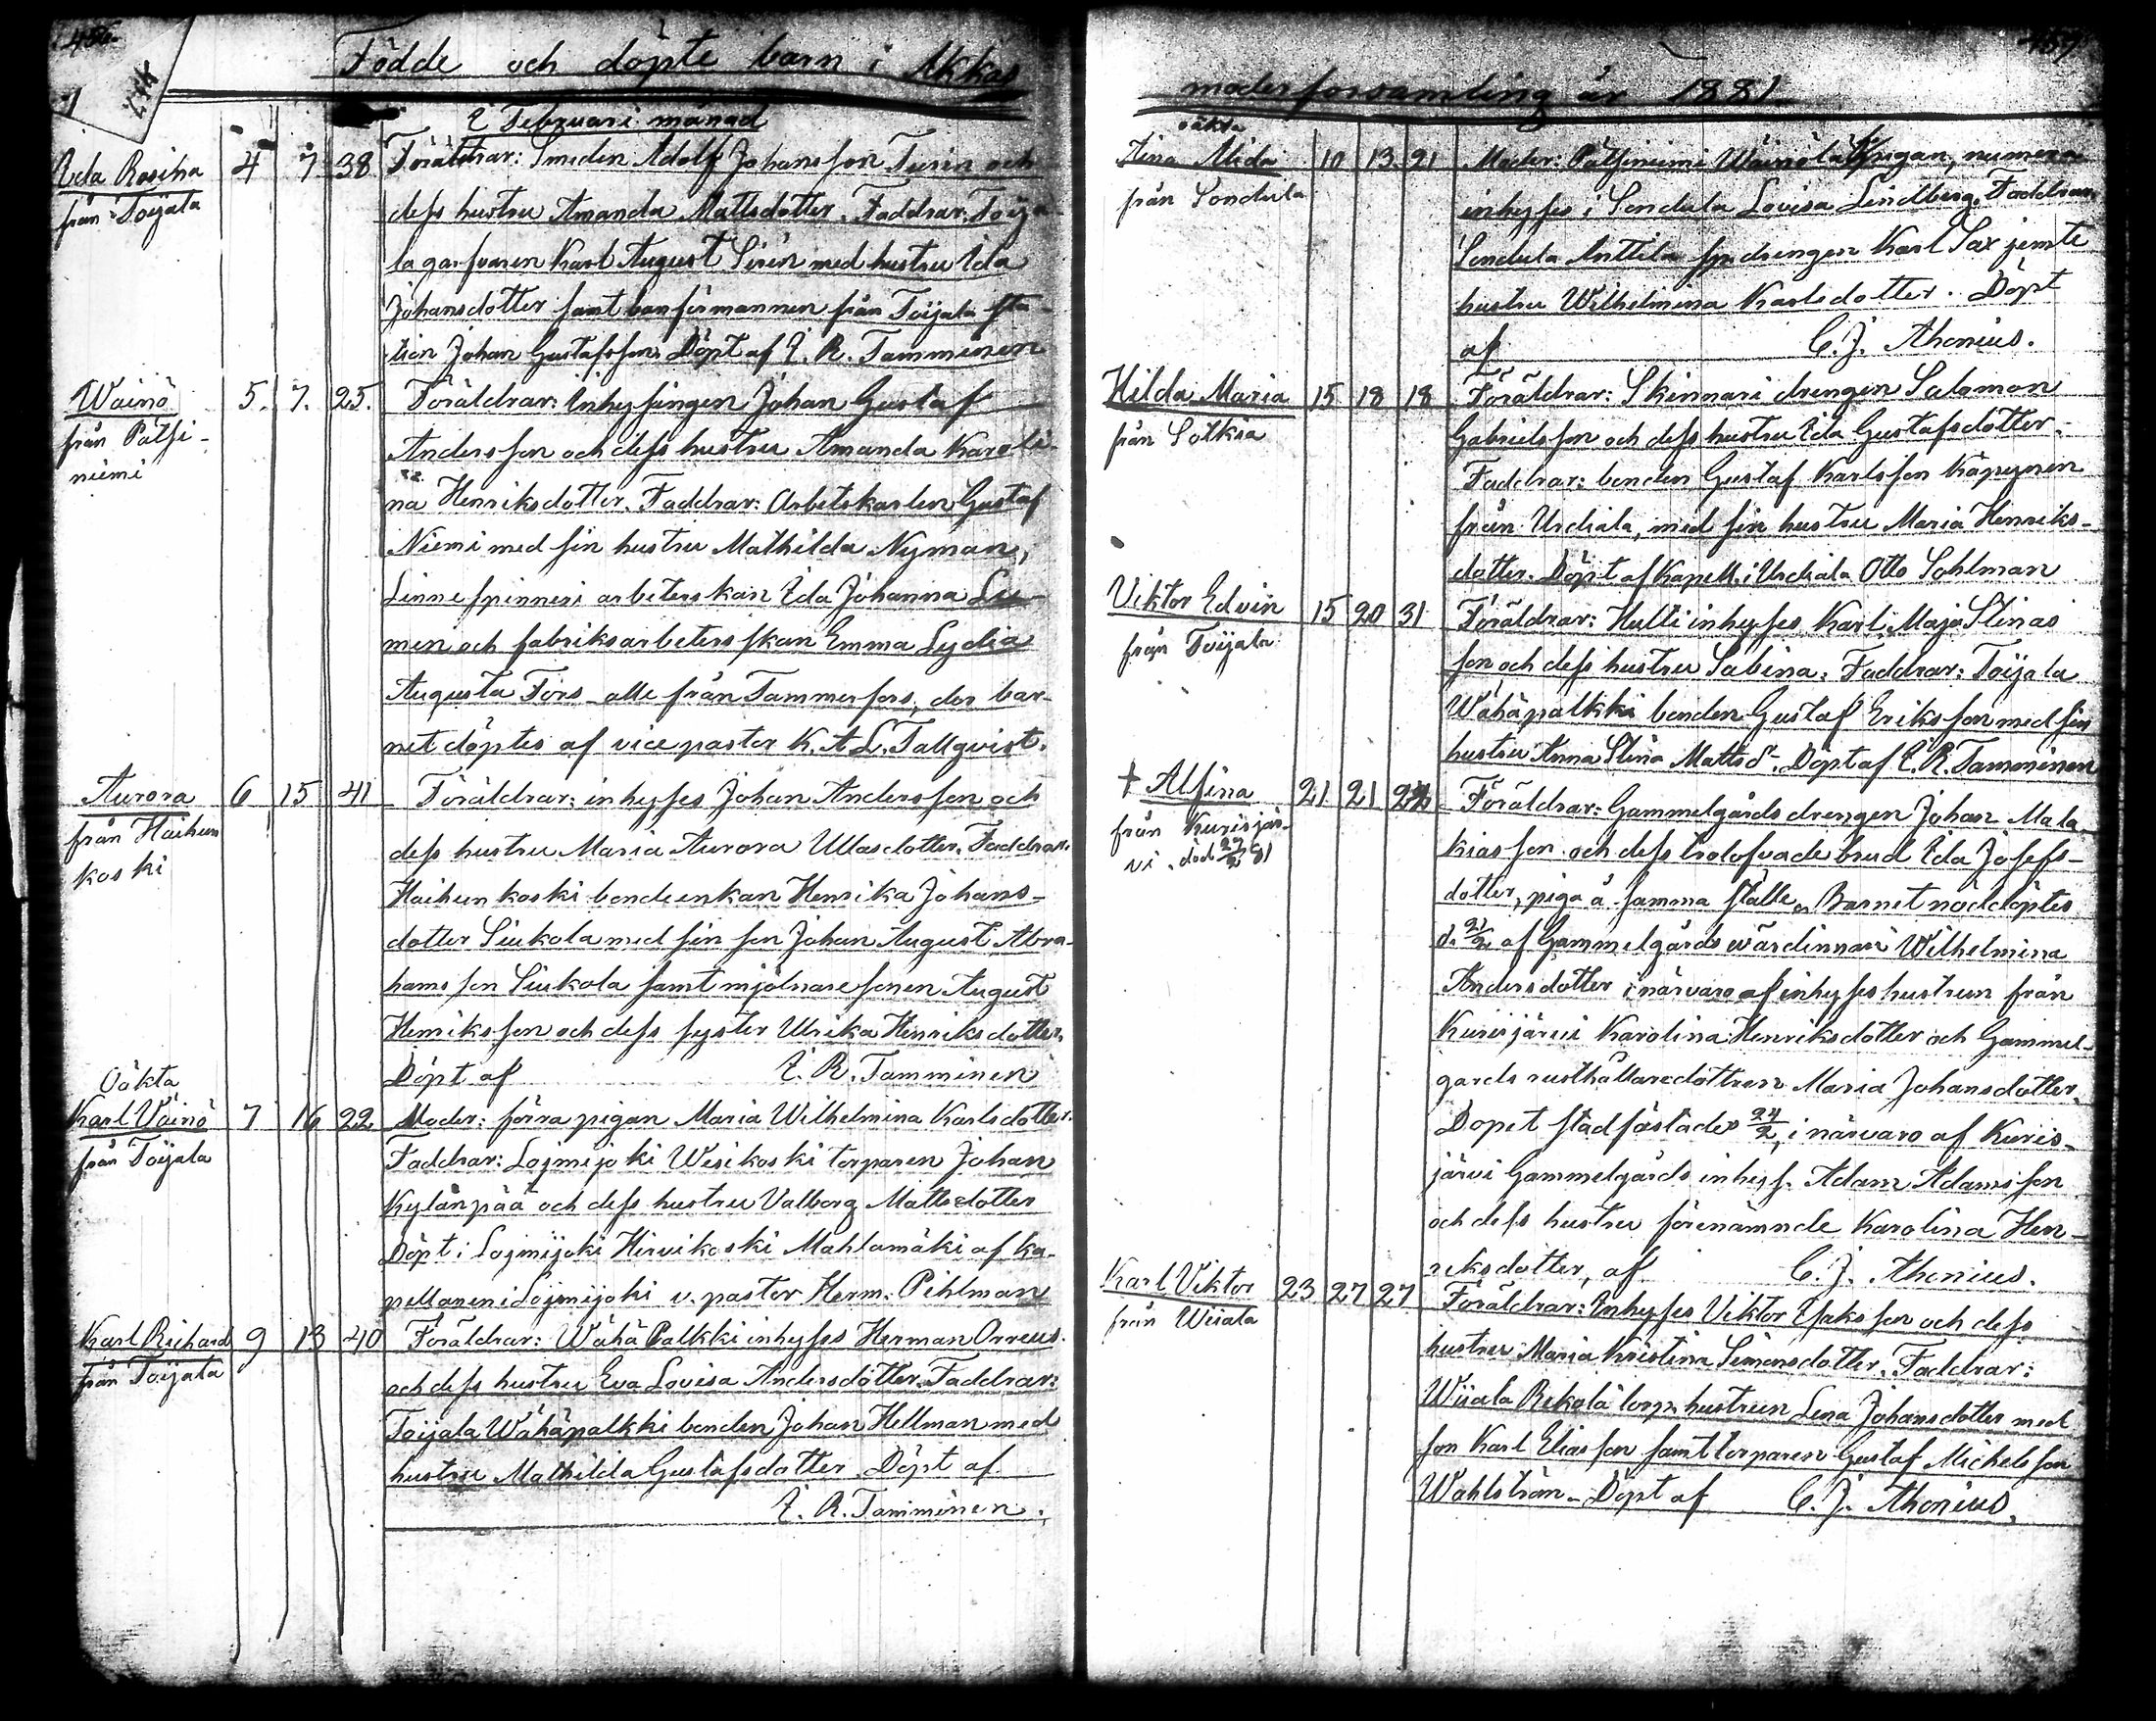 456
Födde och döpte barn i Akkas
I Februari månad
Ida Rosina 4 7 38 Föräldrar: Smeden Adolf Johansson Turin och
från Toijala
dess hustru Amanda Mattsdotter. Faddrar: Toija-
la garfvaren Karl August Sirén med hustru Ida
Johansdotter samt banförmannen från Toijala sta-
tion Johan Gustafsson. Döpt af I. R. Tamminen
Wäinö 5. 7. 25. Föräldrar: Inhysingen Johan Gustaf
från Pätsi-
niemi
Andersson och dess hustru Amanda Karoli-
na Henriksdotter. Faddrar: Arbetskarlen Gustaf
Niemi med sin hustru Mathilda Nyman,
Linnespinneri arbeterskan Ida Johanna
men och fabriksarbeterskan Emma Lydia
Augusta Fors - alle från Tammerfors, der bar-
net döptes af vice pastor K. A. L. Tallqvist.
Aurora 6 15 41 Föräldrar: inhyses Johan Andersson och
från Haihun
koski
dess hustru Maria Aurora Ullasdotter. Faddrar:
Haihunkoski bondeenkan Henrika Johans-
dotter Siukola med sin son Johan August Abra-
hamsson Siukola samt mjölnaresonen August
Henriksson och dess syster Ulrika Henriksdotter.
Döpt af I. R. Tamminen
Oäkta
Karl Väinö 7 16 22 Moder: förra pigan Maria Wilhelmina Karlsdotter.
från Toijala
Faddrar: Lojmijoki Wesikoski torparen Johan
Kylänpää och dess hustru Valborg Mattsdotter
Döpt i Lojmijoki Hirvikoski Mahlamäki af ka-
pellanen i Lojmijoki v. pastor Herm. Pihlman
Karl Richard 9 13 40 Föräldrar: Wähä Palkki inhyses Herman Orreus
från Toijala
och dess hustru Eva Lovisa Andersdotter. Faddrar:
Toijala Wähäpalkki bonden Johan Hellman med
hustru Mathilda Gustafsdotter. Döpt af
I. R. Tamminen.
457
moderförsamling år 1881
oäkta
Aina Alida 10 13 21 Moder: Pätsiniemi Wäinölä pigan, numera
från Sondula
inhyses i Sondula Lovisa Lindberg. Faddrar:
Sondula Anttila drengen Karl Sax jemte
hustru Wilhelmina Karlsdotter. Döpt
af C. J. Ahonius.
Hilda Maria 15 18 18 Föräldrar: Skinnari drengen Salomon
från Sotkia
Gabrielsson och dess hustru Ida Gustafsdotter.
Faddrar: bonden Gustaf Karlsson Käpynen
från Urdiala, med sin hustru Maria Henriks-
dotter. Döpt af Kapell. i Urdiala Otto Sohlman
Viktor Edvin 15 20 31 Föräldrar: Hulli inhyses Karl Maja Stinas
från Toijala
son och dess hustru Sabina. Faddrar: Toijala
Wähäpalkki bonden Gustaf Eriksson med sin
hustru Anna Stina Mattsd. Döpt af I. R. Tamminen
† Alfina 21 21 Föräldrar: Gammelgårds drengen Johan Mala-
från Kurisjär-
vi. död 27/2 81
kiasson och dess trolofvade brud Ida Josefs-
dotter, piga å samma ställe. Barnet nöddöptes
d. 21/2 af Gammelgårds värdinnan Wilhelmina
Andersdotter i närvaro af inhyseshustrun från
Kurisjärvi Karolina Henriksdotter och Gammel-
gårds rusthållaredottren Maria Johansdotter.
Dopet stadfästades 24/2, i närvaro af Kuris-
järvi Gammelgårds inhys. Adam Adamsson
och dess hustru förenämnde Karolina Hen-
riksdotter, af C. J. Ahonius.
Karl Viktor 23 27 27 Föräldrar: Inhyses Viktor Isaksson och dess
från Wiiala
hustru Maria Kristina Simonsdotter. Faddrar:
Wiiala Rekola torp. hustrun Lena Johansdotter med
son Karl Eliasson samt torparen Gustaf Michelsson
Wahlström. Döpt af C. J. Ahonius.